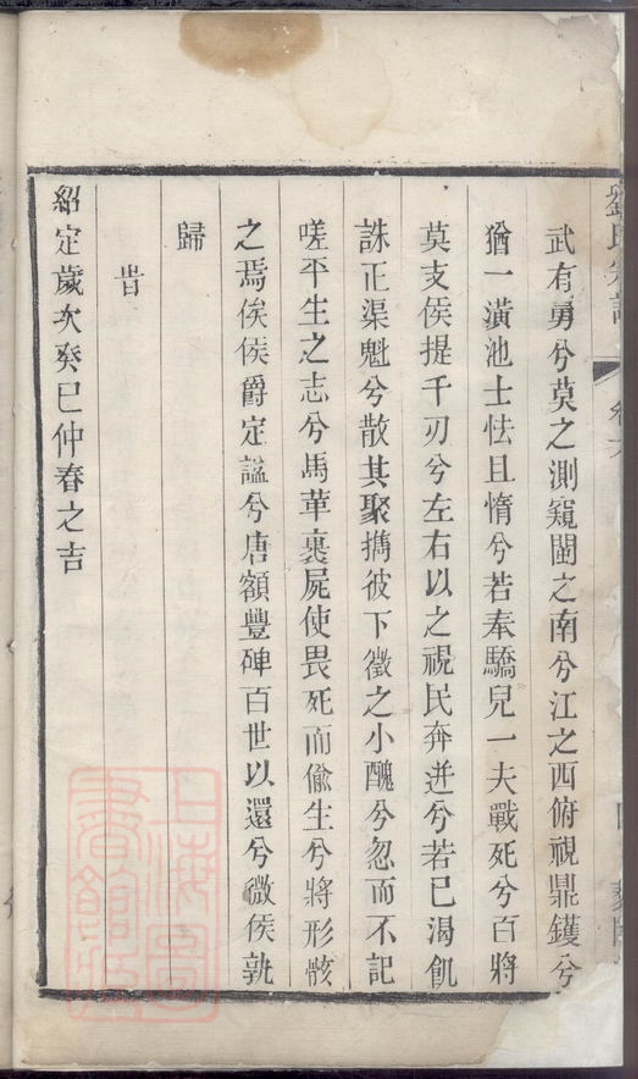 劉氏宗譜 卷六 四
武有勇兮莫之測窺閩之南兮江之西俯視鼎鑊兮
猶一潢池士怯且惰兮若奉驕兒一夫戰死兮百將
莫支侯提千刃兮左右以之視民奔迸兮若已渴飢
誅正渠魁兮散其聚擕彼下徵之小醜兮忽而不記
嗟平生之志兮馬革裹屍使畏死而偷生兮將形骸
之焉俟侯爵定諡兮唐額豐碑百世以還兮微侯孰
歸
旹
紹定歲次癸巳仲春之吉
上海圖
書館藏